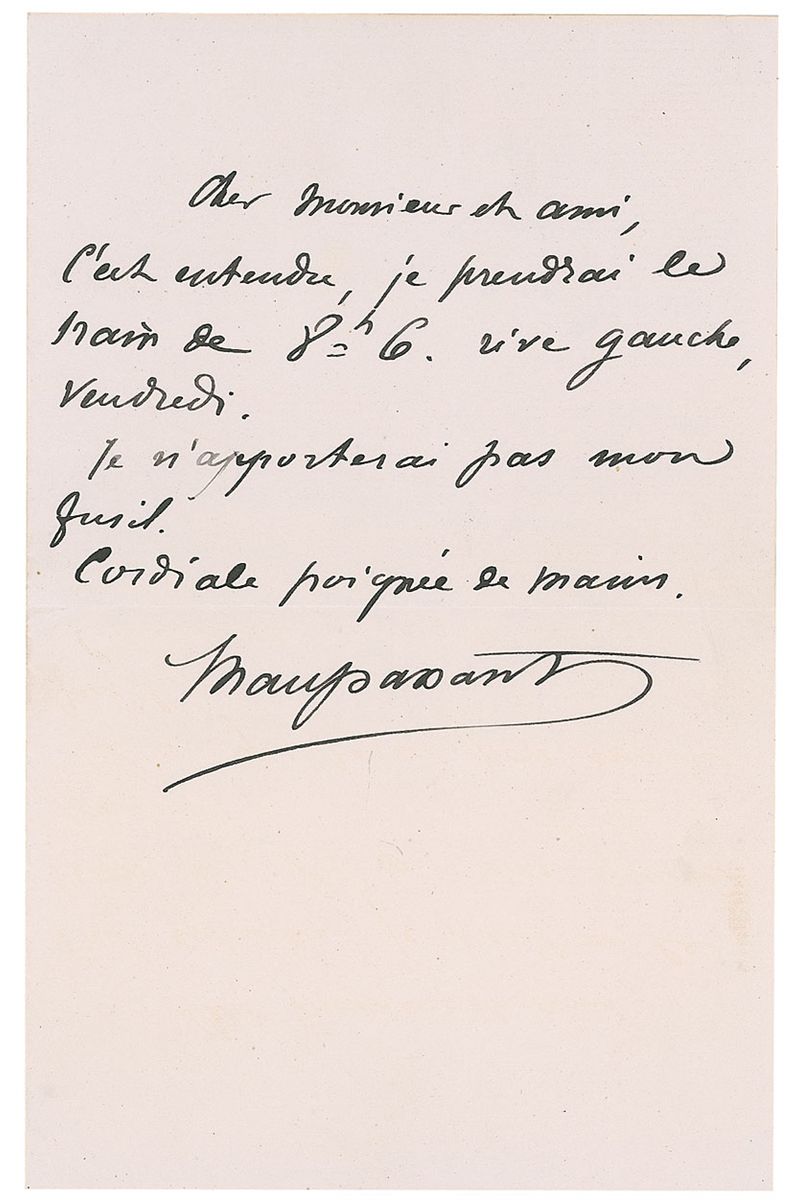 Cher Monsieur et ami,
C'est entendu, je prendrai le
train de 8h 6. rive gauche,
Vendredi.
Je n'apporterai pas mon
fusil.
Cordiale poignée de mains.
Maupassant